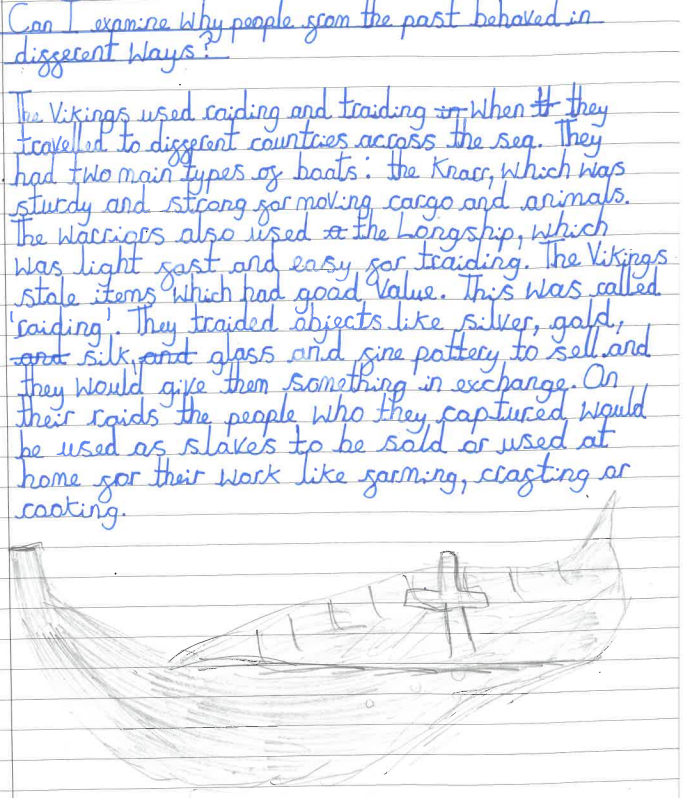 Can I examine why people from the past behaved in
different ways?
The Vikings used raiding and traiding in when tt they
travelled to different countries across the sea. They
had two main types of boats: the Knarr, which was
sturdy and strong for moving cargo and animals.
The warriors also used a the Longship, which
was light fast and easy for traiding. The Vikings
stole items which had good value. This was called
'raiding'. They traided objects like silver, gold,
and silk, and glass and fine pottery to sell and
they would give them something in exchange. On
their raids the people who they captured would
be used as slaves to be sold or used at
home for their work like farming, crafting or
cooking.